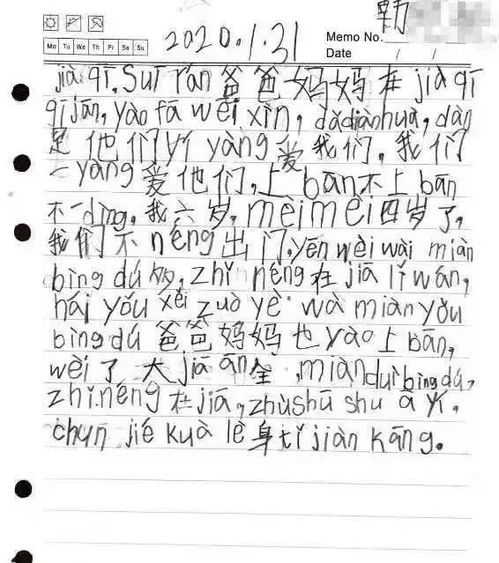 Mo Tu We Th Fr Sa Su
2020.1.31
Memo No.
Date / /
jià qī. Suī rán 爸爸妈妈在 jià qī
qī jān, yào fā wēi xìn, dǎdiànhuà, dàn
是他们 yí yàng 爱我们, 我们
一 yàng 爱他们, 上 bān 不上 bān
不一 dìng. 我六岁, meimei 四岁了,
我们不 néng 出门, yēn wèi wài miàn
bìng dú, zhǐ néng 在 jiā lǐ wán,
hái yǒu xěi zuò yè wà miàn yǒu
bìng dú 爸爸妈妈也 yào 上 bān,
wèi 了大 jiā ān 全, miàn duì bìng dú,
zhǐ néng 在 jiā, zhù shū shu ā yí.
chūn jié kuà lè 身 tǐ jiàn kāng.